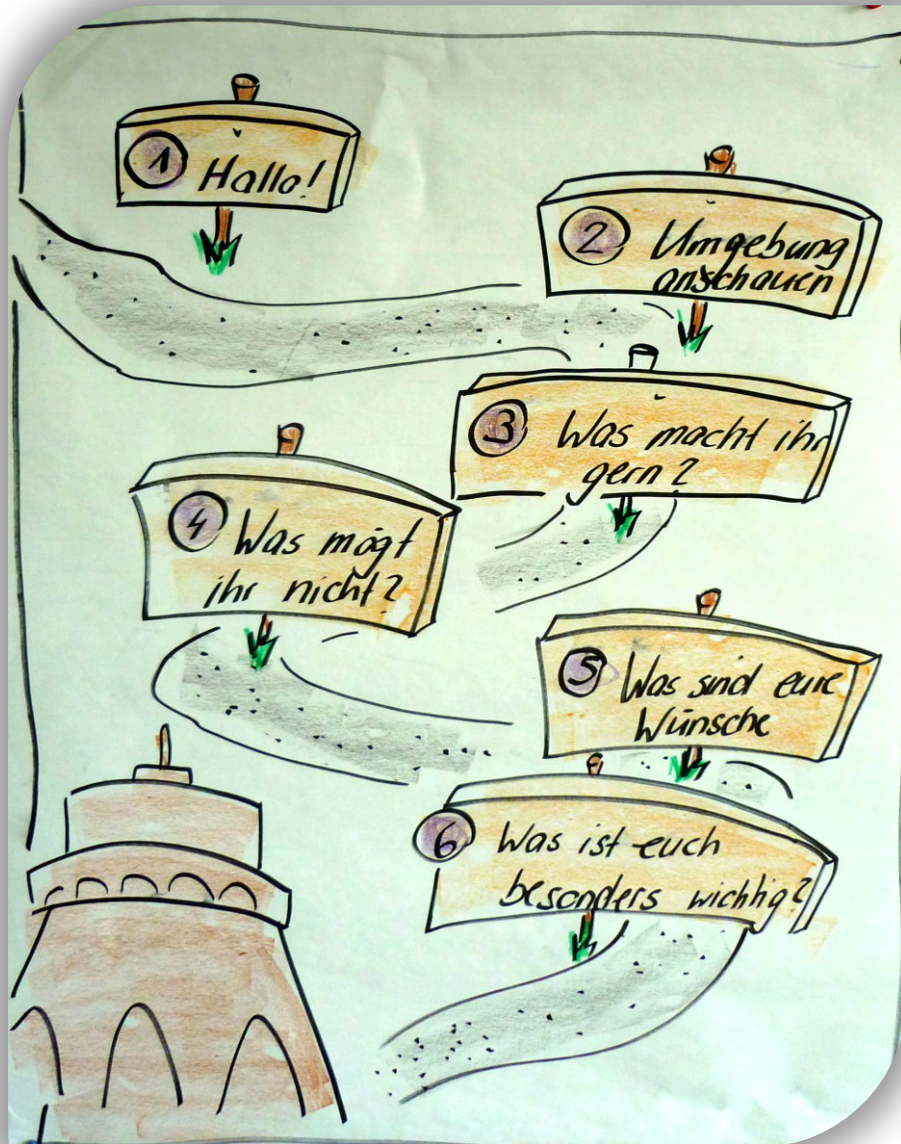 1 Hallo!
2 Umgebung
anschauen
3 Was macht ihr
gern?
4 Was mögt
ihr nicht?
5 Was sind eure
Wünsche
6 Was ist euch
besonders wichtig?